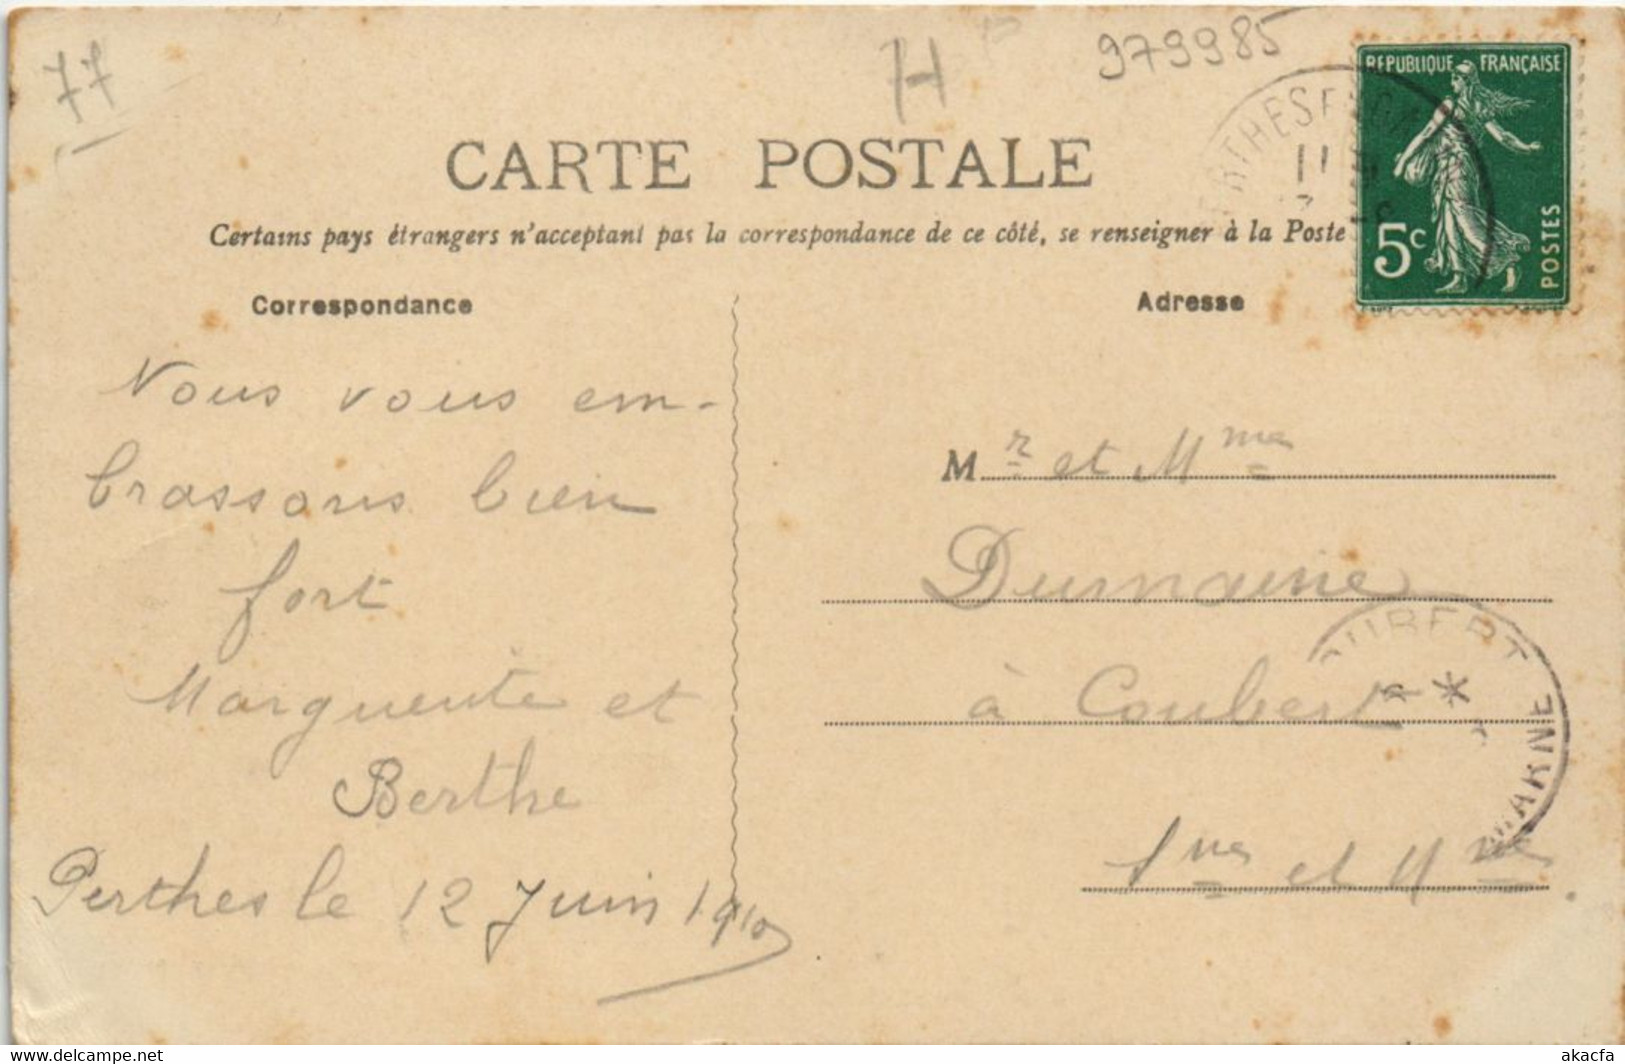 77
H
979985
CARTE POSTALE
Certains pays étrangers n'acceptant pas la correspondance de ce côté, se renseigner à la Poste
REPUBLIQUE FRANÇAISE
5c
POSTES
Correspondance
Adresse
Nous vous em-
brassons bien
fort
Marguerite et
Berthe
Perthes le 12 Juin 1910
Mr et Mme
Dumaine
à Coubert
Sne et Mne.
OUBERT
MARNE
delcampe.net
akacfa